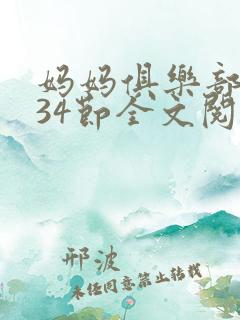 妈妈俱樂部
34節全文閱
邢波
未经同意禁止转载